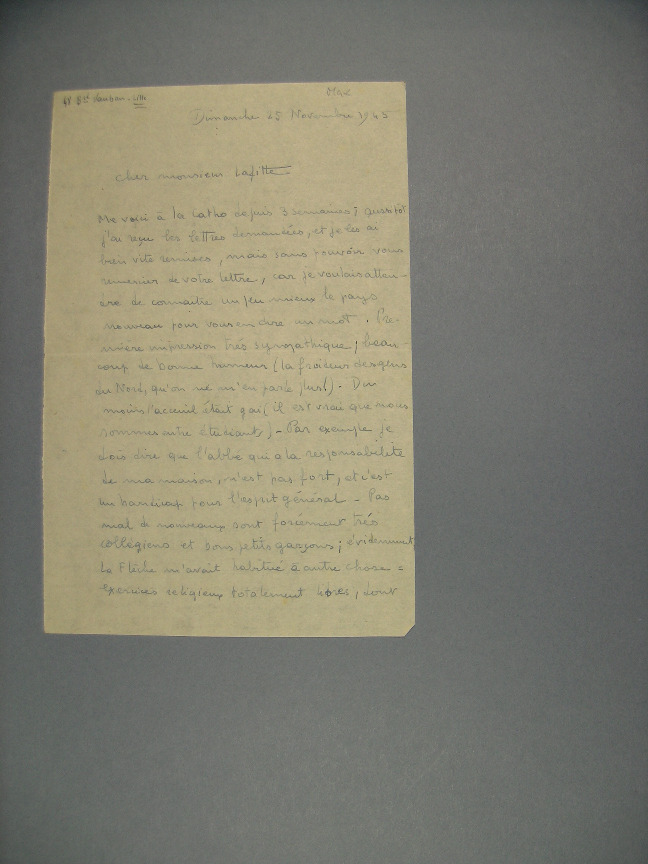 48 Bd Vauban - Lille
Max
Dimanche 25 Novembre 1945
cher monsieur Lafitte -
Me voici à la catho depuis 3 semaines ; aussitôt
j'ai reçu les lettres demandées, et je les ai
bien vite remises, mais sans pouvoir vous
remercier de votre lettre, car je voulais atten-
dre de connaitre un peu mieux le pays
nouveau pour vous en dire un mot. Pre-
mière impression très sympathique ; beau-
coup de bonne humeur (la froideur des gens
du Nord, qu'on ne m'en parle plus!). Du
moins l'acceuil était gai, (il est vrai que nous
sommes entre étudiants) - Par exemple je
dois dire que l'abbé qui a la responsabilité
de ma maison, n'est pas fort, et c'est
un handicap pour l'esprit général - Pas
mal de nouveaux sont forcément très
collégiens et bons petits garçons ; évidemment
La Flèche m'avait habitué à autre chose =
exercices religieux totalement libres, dont